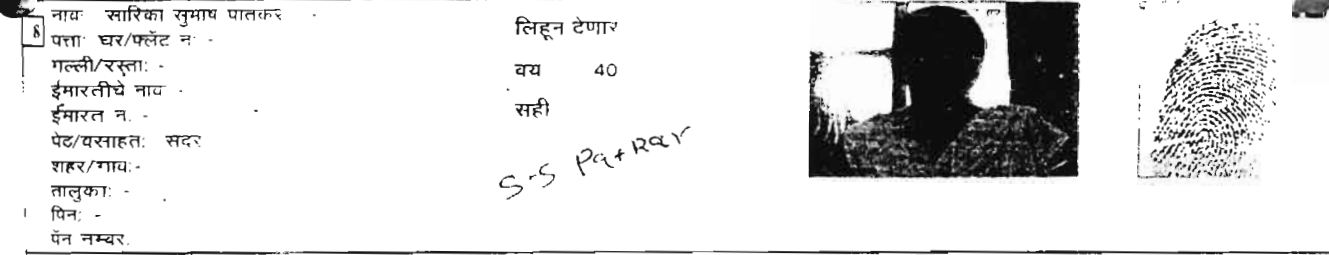 8
नाव: सारिका सुभाष पातकर -
पत्ता: घर/फ्लॅट नं: -
गल्ली/रस्ता: -
ईमारतीचे नाव: -
ईमारत नं: -
पेठ/वसाहत: सदर
शहर/गाव:-
तालुका: -
पिन: -
पॅन नम्बर:
लिहून देणार
वय 40
सही
S-S Patkar